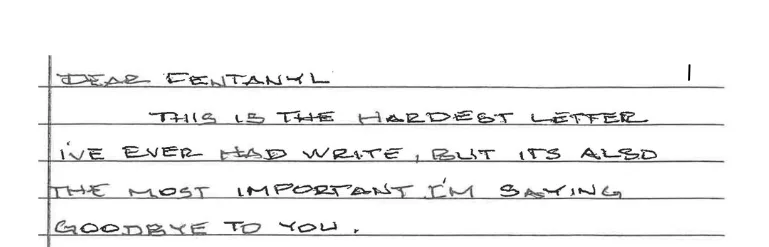 DEAR FENTANYL 1
THIS IS THE HARDEST LETTER
I'VE EVER HAD WRITE, BUT ITS ALSO
THE MOST IMPORTANT I'M SAYING
GOODBYE TO YOU.